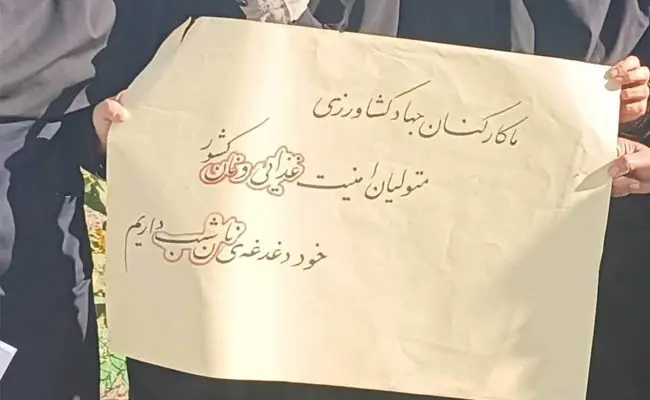 ما کارکنان جهاد کشاورزی
متولیان امنیت غذایی و نان کشور
خود دغدغه‌ی نان شب داریم